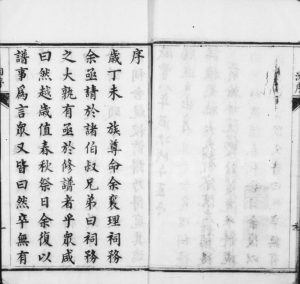 序
歲丁未 族尊命余襄理祠務
余亟請於諸伯叔兄弟曰祠務
之大孰有亟於修譜者乎眾咸
曰然越歲值春秋祭日余復以
譜事為言眾又皆曰然卒無有